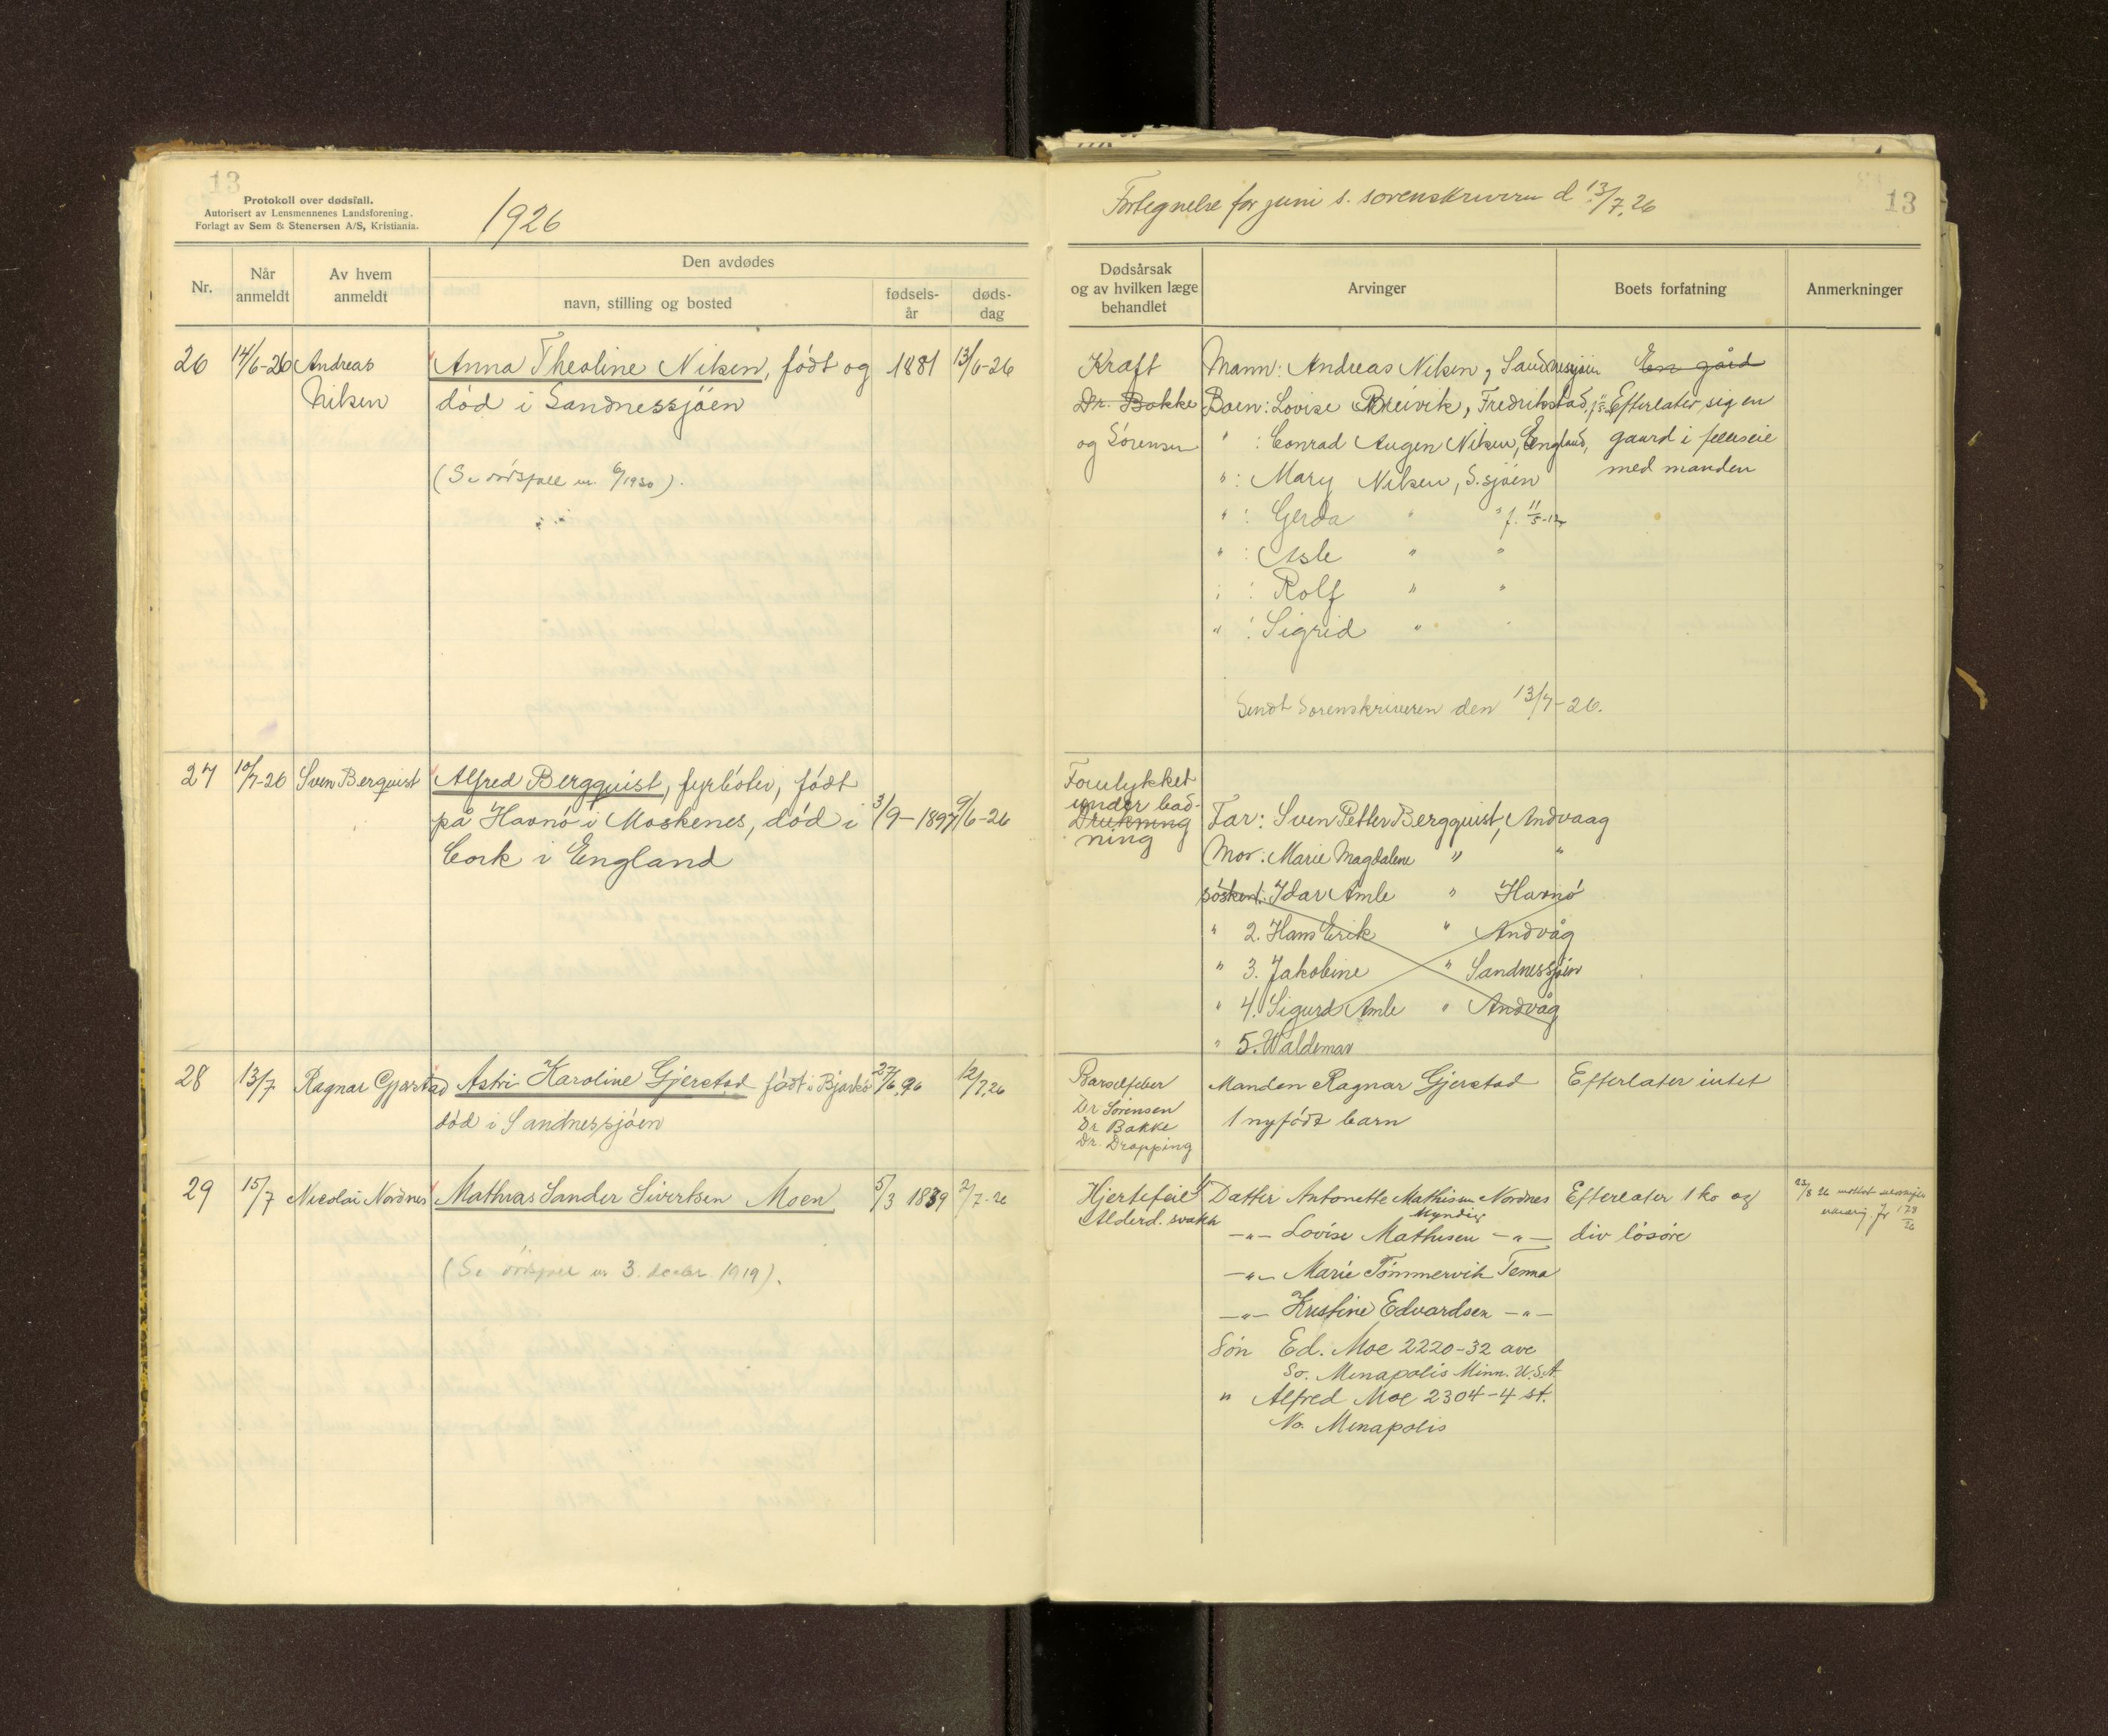 13
Protokoll over dødsfall.
Autorisert av Lensmennenes Landsforening.
Forlagt av Sem & Stenersen A/S, Kristiania.
1926
Nr.
Når anmeldt
Av hvem anmeldt
Den avdødes
navn, stilling og bosted
fødsels-år
døds-dag
26 14/6-26 Andreas Anna Theoline Nilsen, født og 1881 13/6-26
Nilsen død i Sandnessjöen
(Se dödsfall nr. 6/1930).
27 10/7-26 Sven Berquist Alfred Bergquist, fyrböter, födt
på Havnö i Moskenes, död i 3/9-1897 9/6-26
Cork i England
28 13/7 Ragnar Gjerstad Astri Karoline Gjerstad född i Bjarkö 27/6.96 12/7.26
död i Sandnessjöen
29 15/7 Nicolai Nordnes Mathias Sander Sivertsen Moen 5/3 1839 2/7-26
(Se dödsfall nr 3. decbr. 1919).
Fortegnelse for juni s. sorenskriveren d 13/7.26
13
Dødsårsak
og av hvilken læge
behandlet
Arvinger
Boets forfatning
Anmerkninger
Kræft Mann: Andreas Nilsen, Sandnessjöen En gård
Dr. Bakke Barn: Lovise Breivik, Fredrikstad, Efterlater sig en
og Sörensen " : Conrad Augen Nilsen, England, gaard i felleseie
" : Mary Nilsen, S.sjöen med manden
" : Gerda " " f. 11/5-12
" : Asle " "
" : Rolf " "
" : Sigrid "
Sendt Sorenskriveren den 13/7-26.
Forulykket
under bad-
Drukning Far: Sven Petter Bergquist, Andvaag
ning
Mor: Marie Magdalene " "
søsken1: Idar Amle " Havnö
" 2. Hans Erik " Andvåg
" 3. Jakobine " Sandnessjöen
" 4. Sigurd Amle " Andvåg
" 5. Waldemar
Barselfeber Manden Ragnar Gjerstad Efterlater intet
Dr Sörensen 1 nyfödt barn
Dr Bakke
Dr. Drapping
Hjertefeil Datter Antonette Mathisen Nordnes Efterlater 1 ko og
Alderd. svakh Myndig
-"- Lovise Mathisen -"- div lösöre
-"- Marie Tömmervik Tenna
-"- Kristine Edvardsen -"-
Sön Ed. Moe 2220-32 ave
So. Menapolis Minn. U.S.A.
" Alfred Moe 2304-4 st.
No. Menapolis